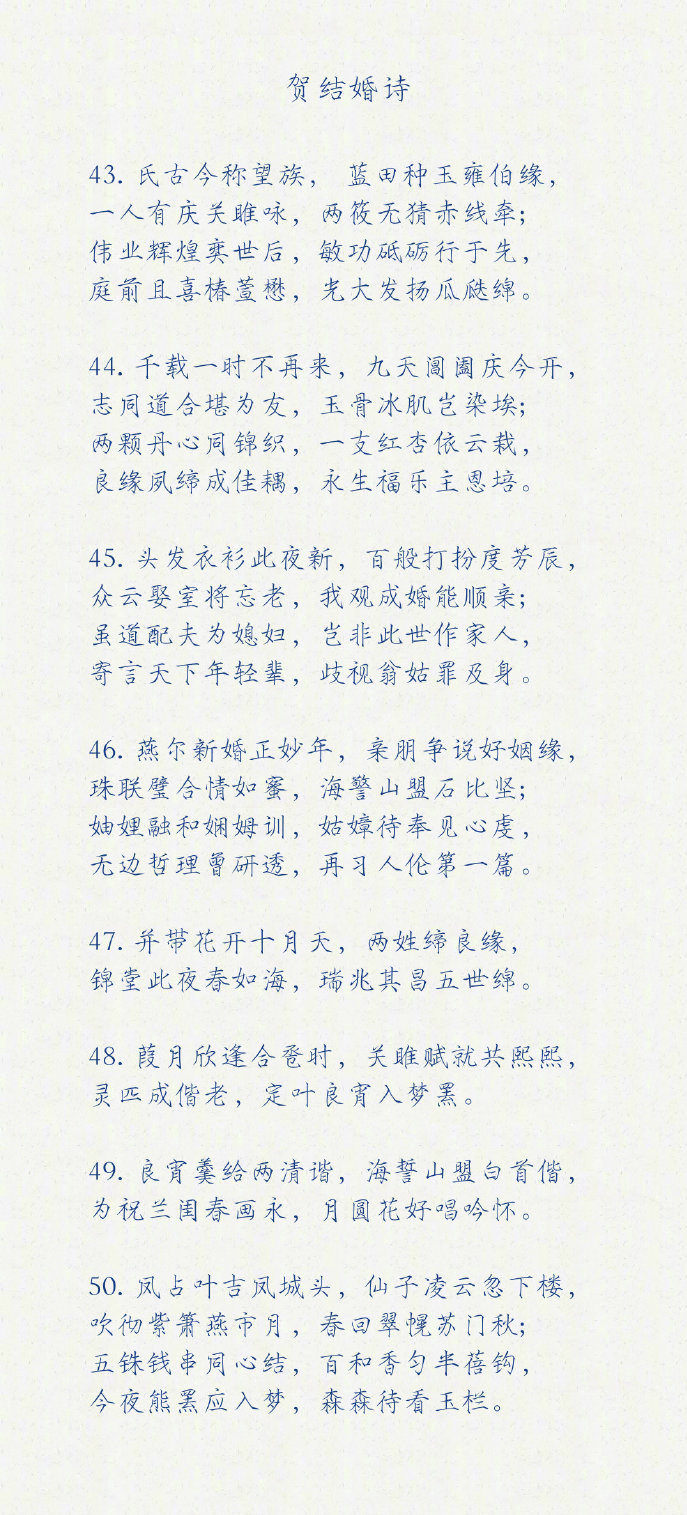 贺结婚诗
43. 氏古今称望族， 蓝田种玉雍伯缘，
一人有庆关雎咏，两筱无猜赤线牵；
伟业辉煌奕世后，敏功砥砺行于先，
庭前且喜椿萱懋，光大发扬瓜瓞绵。
44. 千载一时不再来，九天阊阖庆今开，
志同道合堪为友，玉骨冰肌岂染埃；
两颗丹心同锦织，一支红杏依云栽，
良缘夙缔成佳耦，永生福乐主恩培。
45. 头发衣衫此夜新，百般打扮度芳辰，
众云娶室将忘老，我观成婚能顺亲；
虽道配夫为媳妇，岂非此世作家人，
寄言天下年轻辈，歧视翁姑罪及身。
46. 燕尔新婚正妙年，亲朋争说好姻缘，
珠联璧合情如蜜，海警山盟石比坚；
妯娌融和娴姆训，姑嫜待奉见心虔，
无边哲理曾研透，再习人伦第一篇。
47. 并带花开十月天，两姓缔良缘，
锦堂此夜春如海，瑞兆其昌五世绵。
48. 葭月欣逢合卺时，关雎赋就共熙熙，
灵匹成偕老，定叶良宵入梦罴。
49. 良宵羹给两清谐，海誓山盟白首偕，
为祝兰闺春画永，月圆花好唱吟怀。
50. 凤占叶吉凤城头，仙子凌云忽下楼，
吹彻紫箫燕市月，春回翠幌苏门秋；
五铢钱串同心结，百和香匀半蓓钩，
今夜熊罴应入梦，森森待看玉栏。